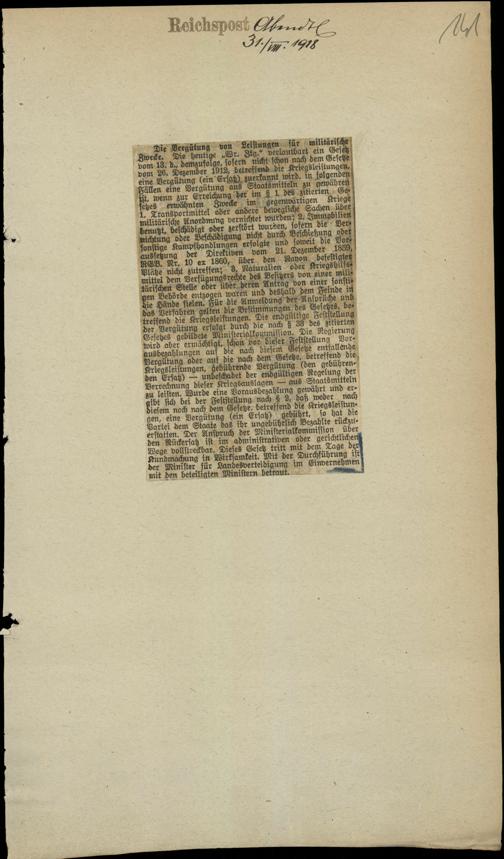 Reichspost Abendbl
31./VIII. 1918
Die Vergütung von Leistungen für militärische
Zwecke. Die heutige „Wr. Ztg." verlautbart ein Gesetz
vom 13. d., demzufolge, sofern nicht schon nach dem Gesetze
vom 26. Dezember 1912, betreffend die Kriegsleistungen,
eine Vergütung (ein Ersatz) zuerkannt wird, in folgenden
Fällen eine Vergütung aus Staatsmitteln zu gewähren
ist, wenn zur Erreichung der im § 1 des zitierten Ge-
setzes erwähnten Zwecke im gegenwärtigen Kriege
1. Transportmittel oder andere bewegliche Sachen über
militärische Anordnung vernichtet wurden; 2. Immobilien
benutzt, beschädigt oder zerstört wurden, sofern die Ver-
nichtung oder Beschädigung nicht durch Beschießung oder
sonstige Kampfhandlungen erfolgte und soweit die Vor-
aussetzung der Direktiven vom 21. Dezember 1859,
RGB. Nr. 10 ex 1860, über den Rayon befestigter
Plätze nicht zutreffen; 3. Naturalien oder Kriegshilfs-
mittel dem Verfügungsrechte des Besitzers von einer mili-
tärischen Stelle oder über deren Antrag von einer sonsti-
gen Behörde entzogen waren und deshalb dem Feinde in
die Hände fielen. Für die Anmeldung der Ansprüche und
das Verfahren gelten die Bestimmungen des Gesetzes, be-
treffend die Kriegsleistungen. Die endgültige Feststellung
der Vergütung erfolgt durch die nach § 33 des zitierten
Gesetzes gebildete Ministerialkommission. Die Regierung
wird aber ermächtigt, schon vor dieser Feststellung Vor-
auszahlungen auf die nach diesem Gesetze entfallende
Vergütung oder auf die nach dem Gesetze, betreffend die
Kriegsleistungen, gebührende Vergütung (den gebühren-
den Ersatz) — unbeschadet der endgültigen Regelung der
Verrechnung dieser Kriegsauslagen — aus Staatsmitteln
zu leisten. Wurde eine Vorauszahlung gewährt und er-
gibt sich bei der Feststellung nach § 2, daß weder nach
diesem noch nach dem Gesetze, betreffend die Kriegsleistun-
gen, eine Vergütung (ein Ersatz) gebührt, so hat die
Partei dem Staate das ihr ungebührlich Bezahlte rückzu-
erstatten. Der Anspruch der Ministerialkommission über
den Rückersatz ist im administrativen oder gerichtlichen
Wege vollstreckbar. Dieses Gesetz tritt mit dem Tage der
Kundmachung in Wirksamkeit. Mit der Durchführung ist
der Minister für Landesverteidigung im Einvernehmen
mit den beteiligten Ministern betraut.